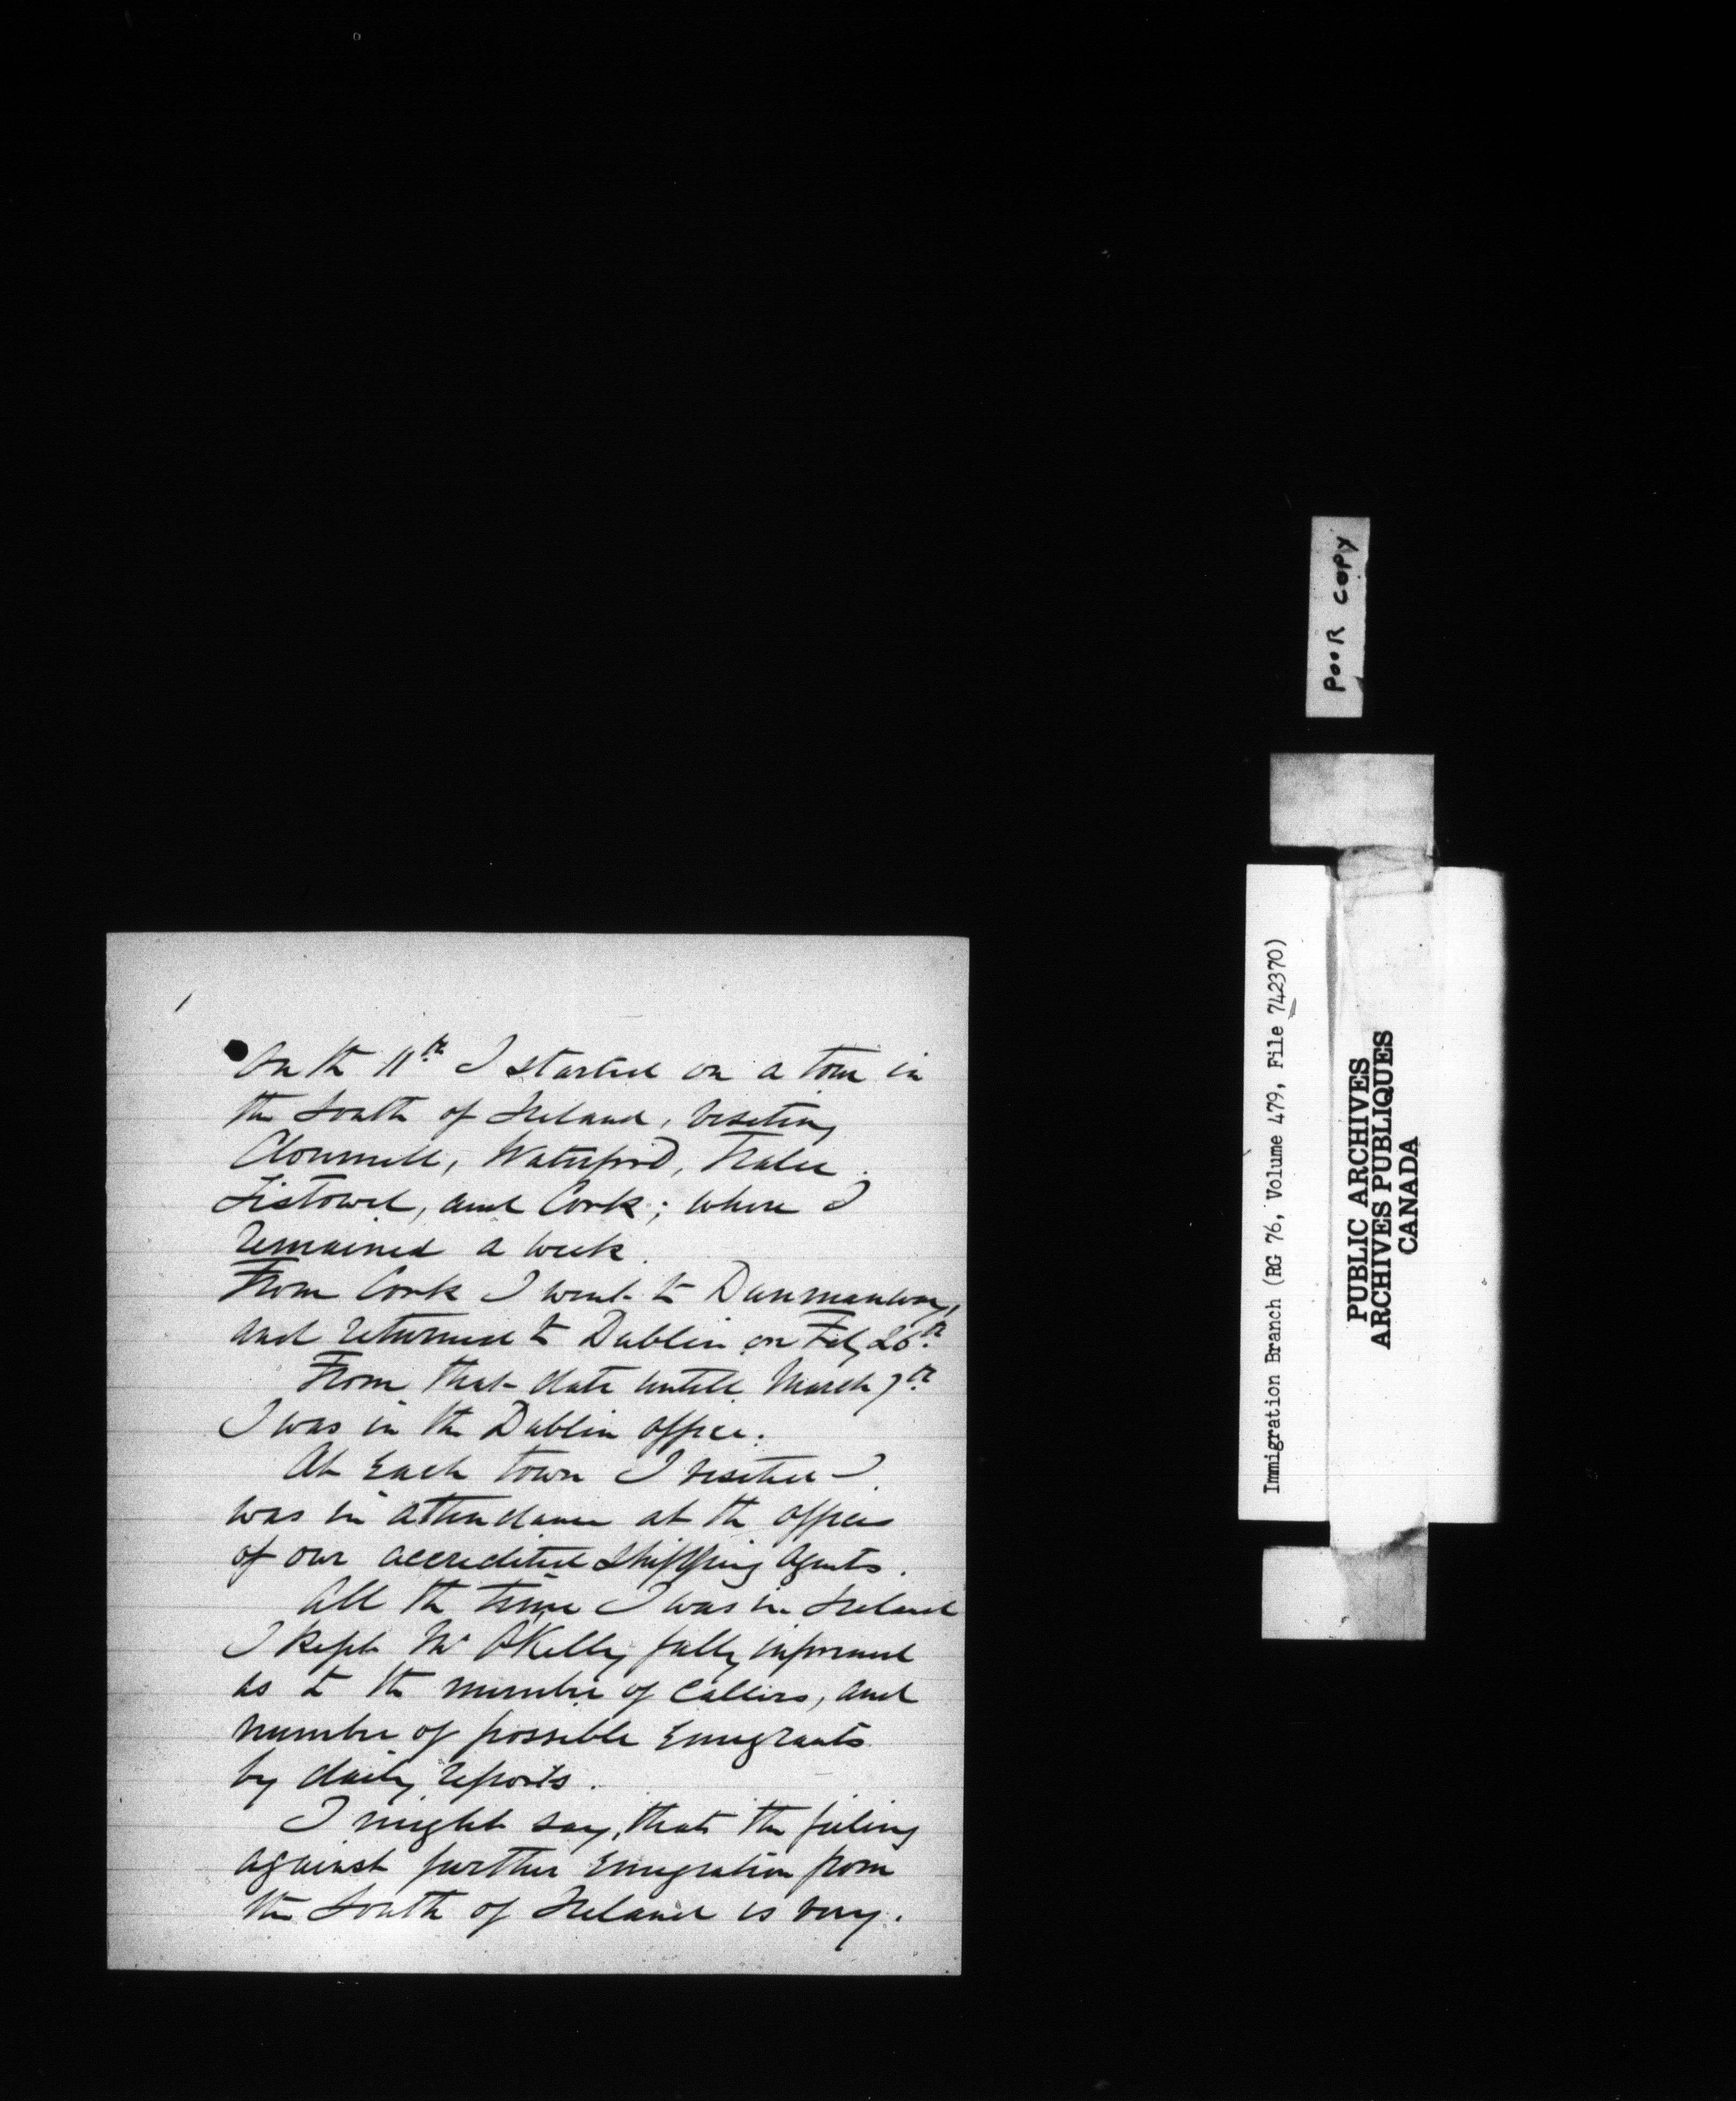 On the 11th I started on a tour in
the South of Ireland, visiting
Clonmell, Waterford, Tralee
Listowel, and Cork; where I
remained a week.
From Cork I went to Dunmanway,
and returned to Dublin on Feby 26th.
From that date untill March 7th
I was in the Dublin office.
At Each town I visited I
was in attendance at the offices
of our accredited Shipping Agents.
All the time I was in Ireland
I kept Mr O'Kelly fully informed
as to the number of Callers, and
number of possible Emigrants
by daily reports.
I might say, that the feeling
against further Emigration from
the South of Ireland is very.
POOR COPY
Immigration Branch (RG 76, Volume 479, File 742370)
PUBLIC ARCHIVES
ARCHIVES PUBLIQUES
CANADA